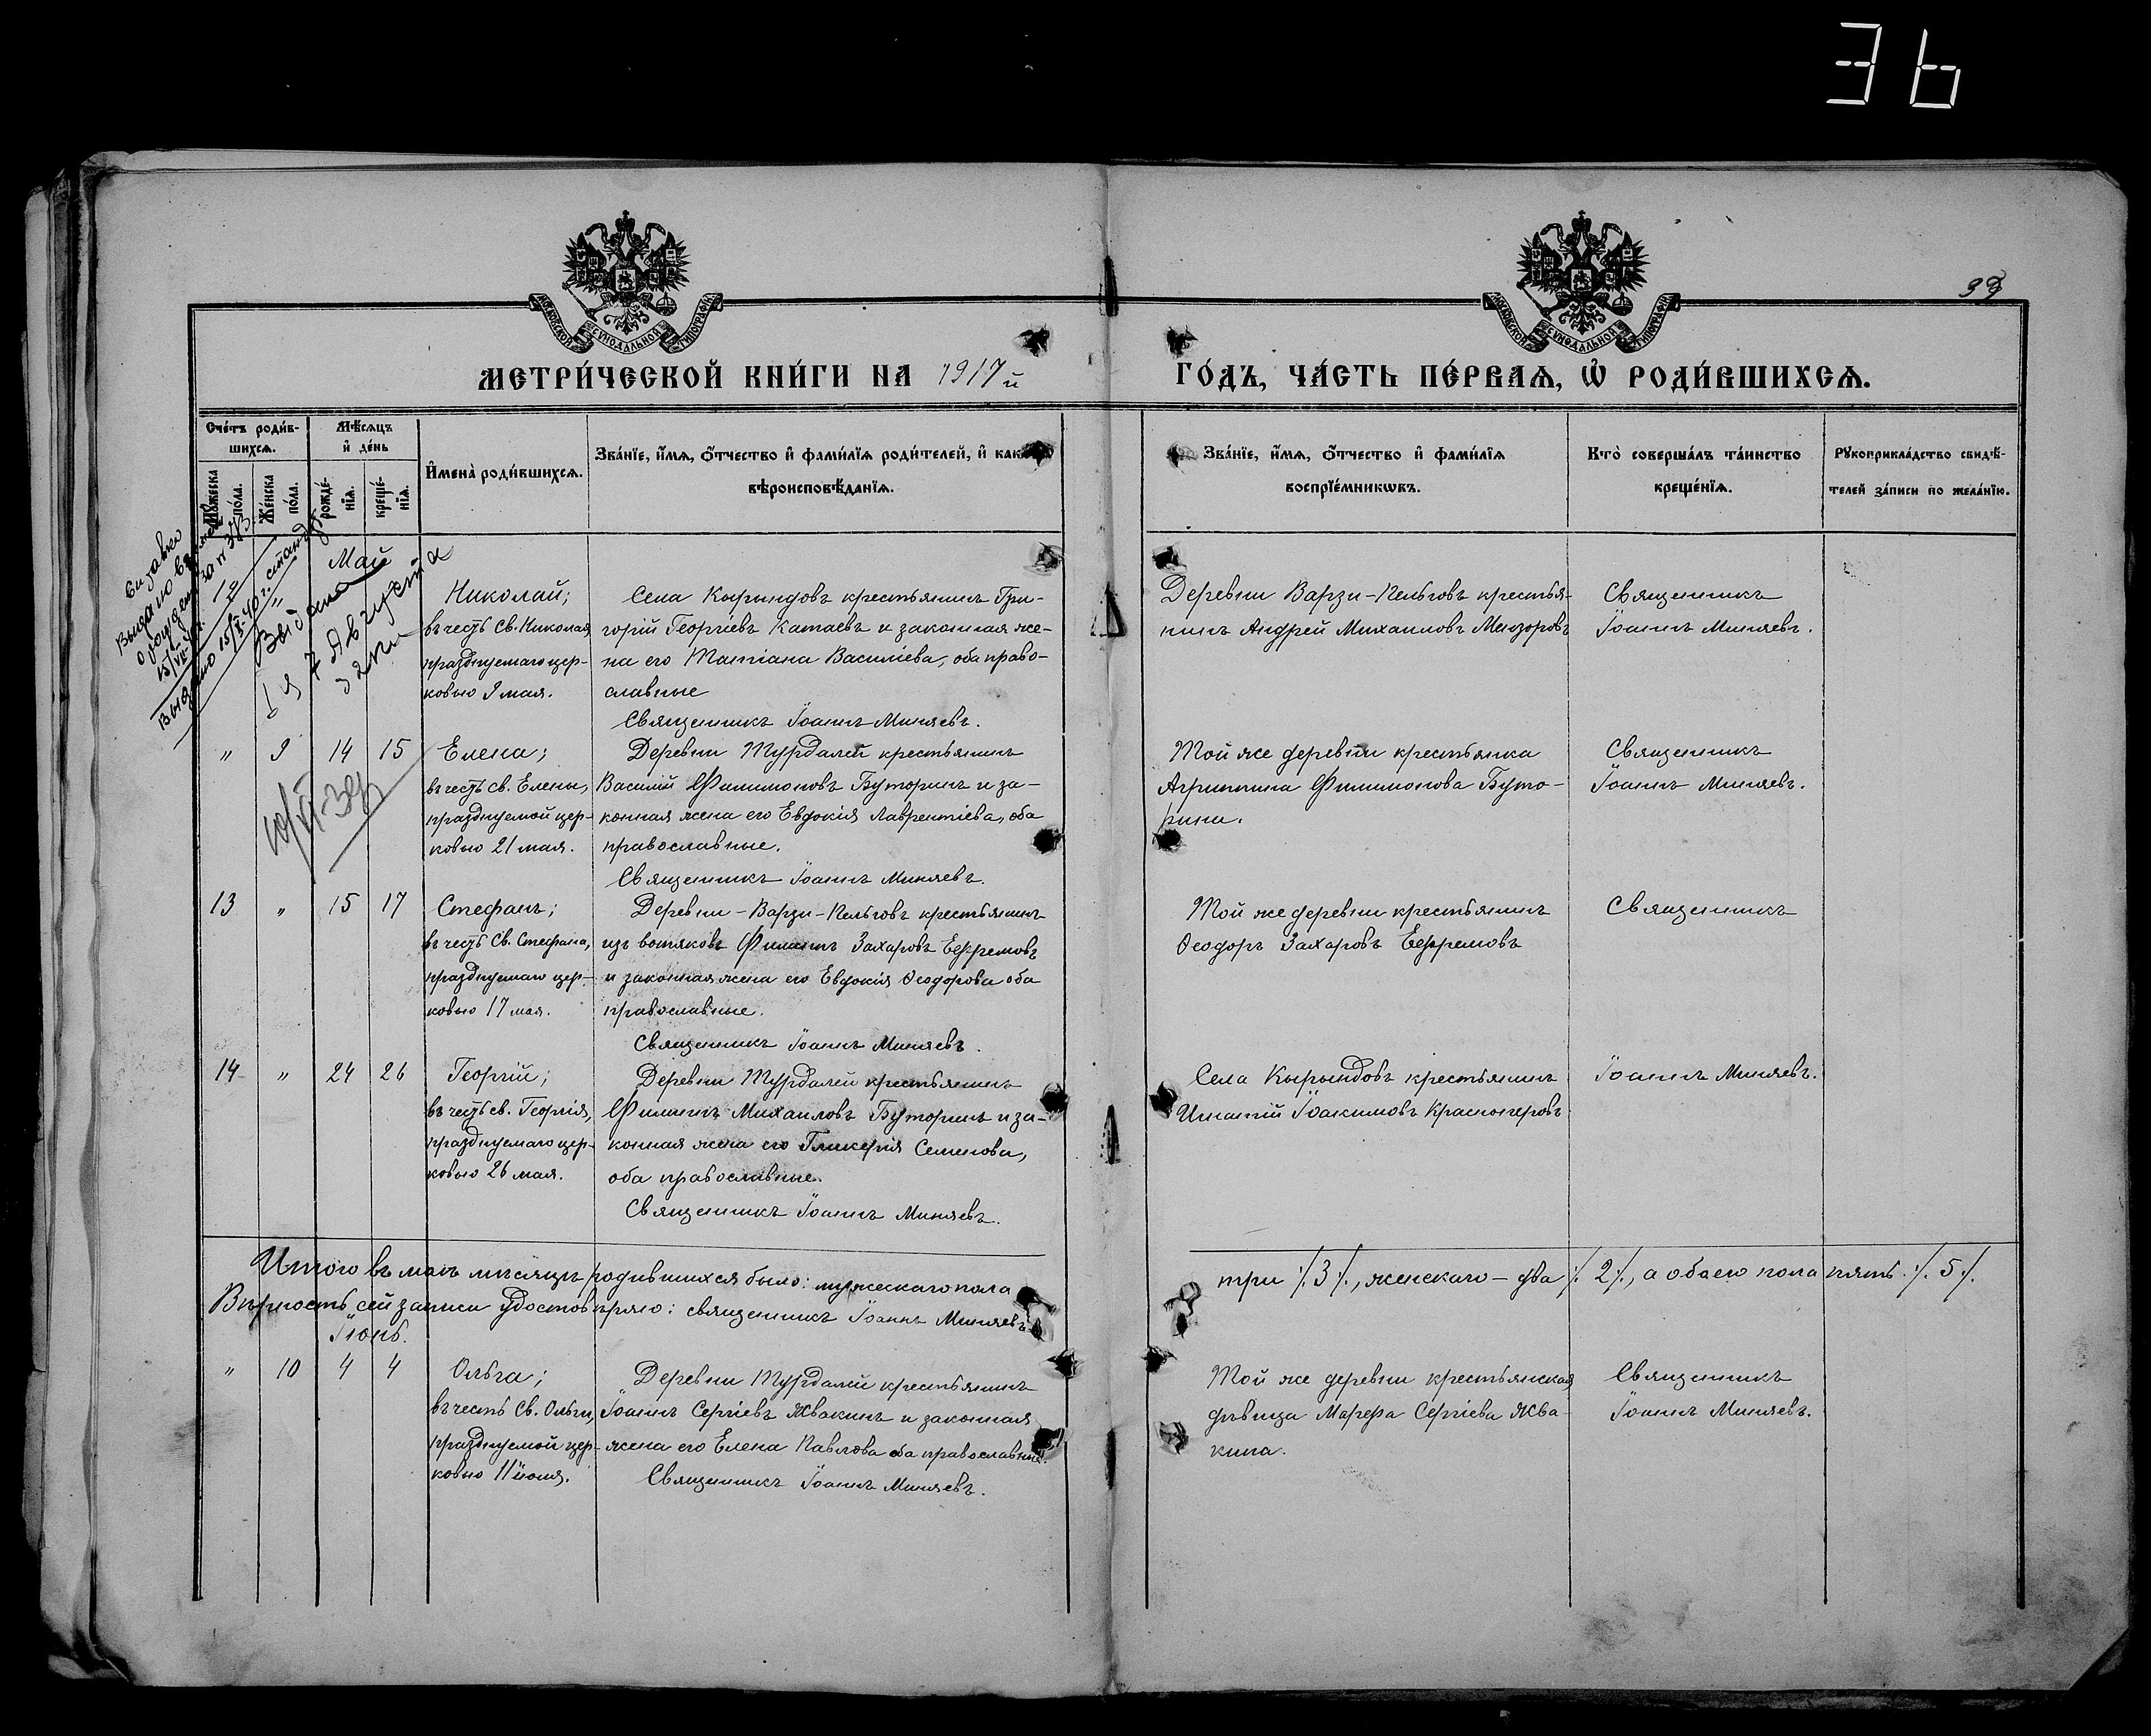 36
39
МОСКОВСКОЙ СУНОДАЛЬНОЙ ТИПОГРАФІИ
МОСКОВСКОЙ СУНОДАЛЬНОЙ ТИПОГРАФІИ
МЕТРИ́ЧЕСКОЙ КНИ́ГИ НА 1917 й
ГО́ДЪ, ЧА́СТЬ ПЕ́РВАѦ, Ѡ҆ РОДИ́ВШИХСѦ.
Сче́тъ роди́в-
шихсѧ.
Мꙋ́жеска по́ла.
Же́нска по́ла.
Мѣ́сѧцъ
и҆ де́нь
рожде́-нїѧ.
креще́-нїѧ.
И҆мена̀ роди́вшихсѧ.
Зва́нїе, и҆́мѧ, ѻ҆́тчество и҆ фами́лїѧ роди́телей, и҆ как
вѣроисповѣ́данїѧ.
Зва́нїе, и҆́мѧ, ѻ҆́тчество и҆ фами́лїѧ
воспрїе́мникѡвъ.
Кто̀ соверша́лъ та́инство
креще́нїѧ.
Рꙋкоприкла́дство свидѣ́-
телей за́писи по жела́нїю.
Май
12 "
Николай;
въ честь Св. Николая
празднуемаго цер-
ковью 9 мая.
Села Кырындовъ крестьянинъ Гри-
горій Георгіевъ Катаевъ и законная же-
на его Татіана Василіева, оба право-
славные
Священникъ Іоаннъ Миняевъ.
Деревни Варзи-Пельговъ крестья-
нинъ Андрей Михаиловъ Мензоровъ
Священникъ
Іоаннъ Миняевъ.
" 9 14 15
Елена;
въ честь св. Елены,
празднуемой цер-
ковью 21 мая.
Деревни Турдалей крестьянинъ
Василій Филимоновъ Буторинъ и за-
конная жена его Евдокія Лаврентіева, оба
православные.
Священникъ Іоаннъ Миняевъ.
Той же деревни крестьянка
Агриппина Филимонова Буто-
рина.
Священникъ
Іоаннъ Миняевъ.
13 " 15 17
Стефанъ;
въ честь Св. Стефана,
празднуемаго цер-
ковью 17 мая.
Деревни-Варзи-Пельговъ крестьянинъ
изъ вотяковъ Филиппъ Захаровъ Ефремовъ
и законная жена его Евдокія Ѳеодорова оба
православные.
Священникъ Іоаннъ Миняевъ.
Той же деревни крестьянинъ
Ѳеодоръ Захаровъ Ефремовъ
Священникъ
14 " 24 26
Георгій;
въ честь св. Георгія,
празднуемаго цер-
ковью 26 мая.
Деревни Турдалей крестьянинъ
Филиппъ Михаиловъ Буторинъ и за-
конная жена его Гликерія Семенова,
оба православные.
Священникъ Іоаннъ Миняевъ.
Села Кырындовъ крестьянинъ
Игнатій Іоакимовъ Красноперовъ
Іоаннъ Миняевъ.
Итого въ маѣ мѣсяцѣ родившихся было: мужескаго пола три ./.3./., женскаго – два ./.2./., а обоего пола пять ./.5./.
Вѣрность сей записи удостовѣряю: священникъ Іоаннъ Миняевъ
Іюнь.
" 10 4 4
Ольга;
въ честь Св. Ольги,
празднуемой цер-
ковью 11 іюля.
Деревни Турдалей крестьянинъ
Іоаннъ Сергіевъ Жвакинъ и законная
жена его Елена Павлова оба православные.
Священникъ Іоаннъ Миняевъ.
Той же деревни крестьянская
дѣвица Марѳа Сергіева Жва-
кина.
Священникъ
Іоаннъ Миняевъ.